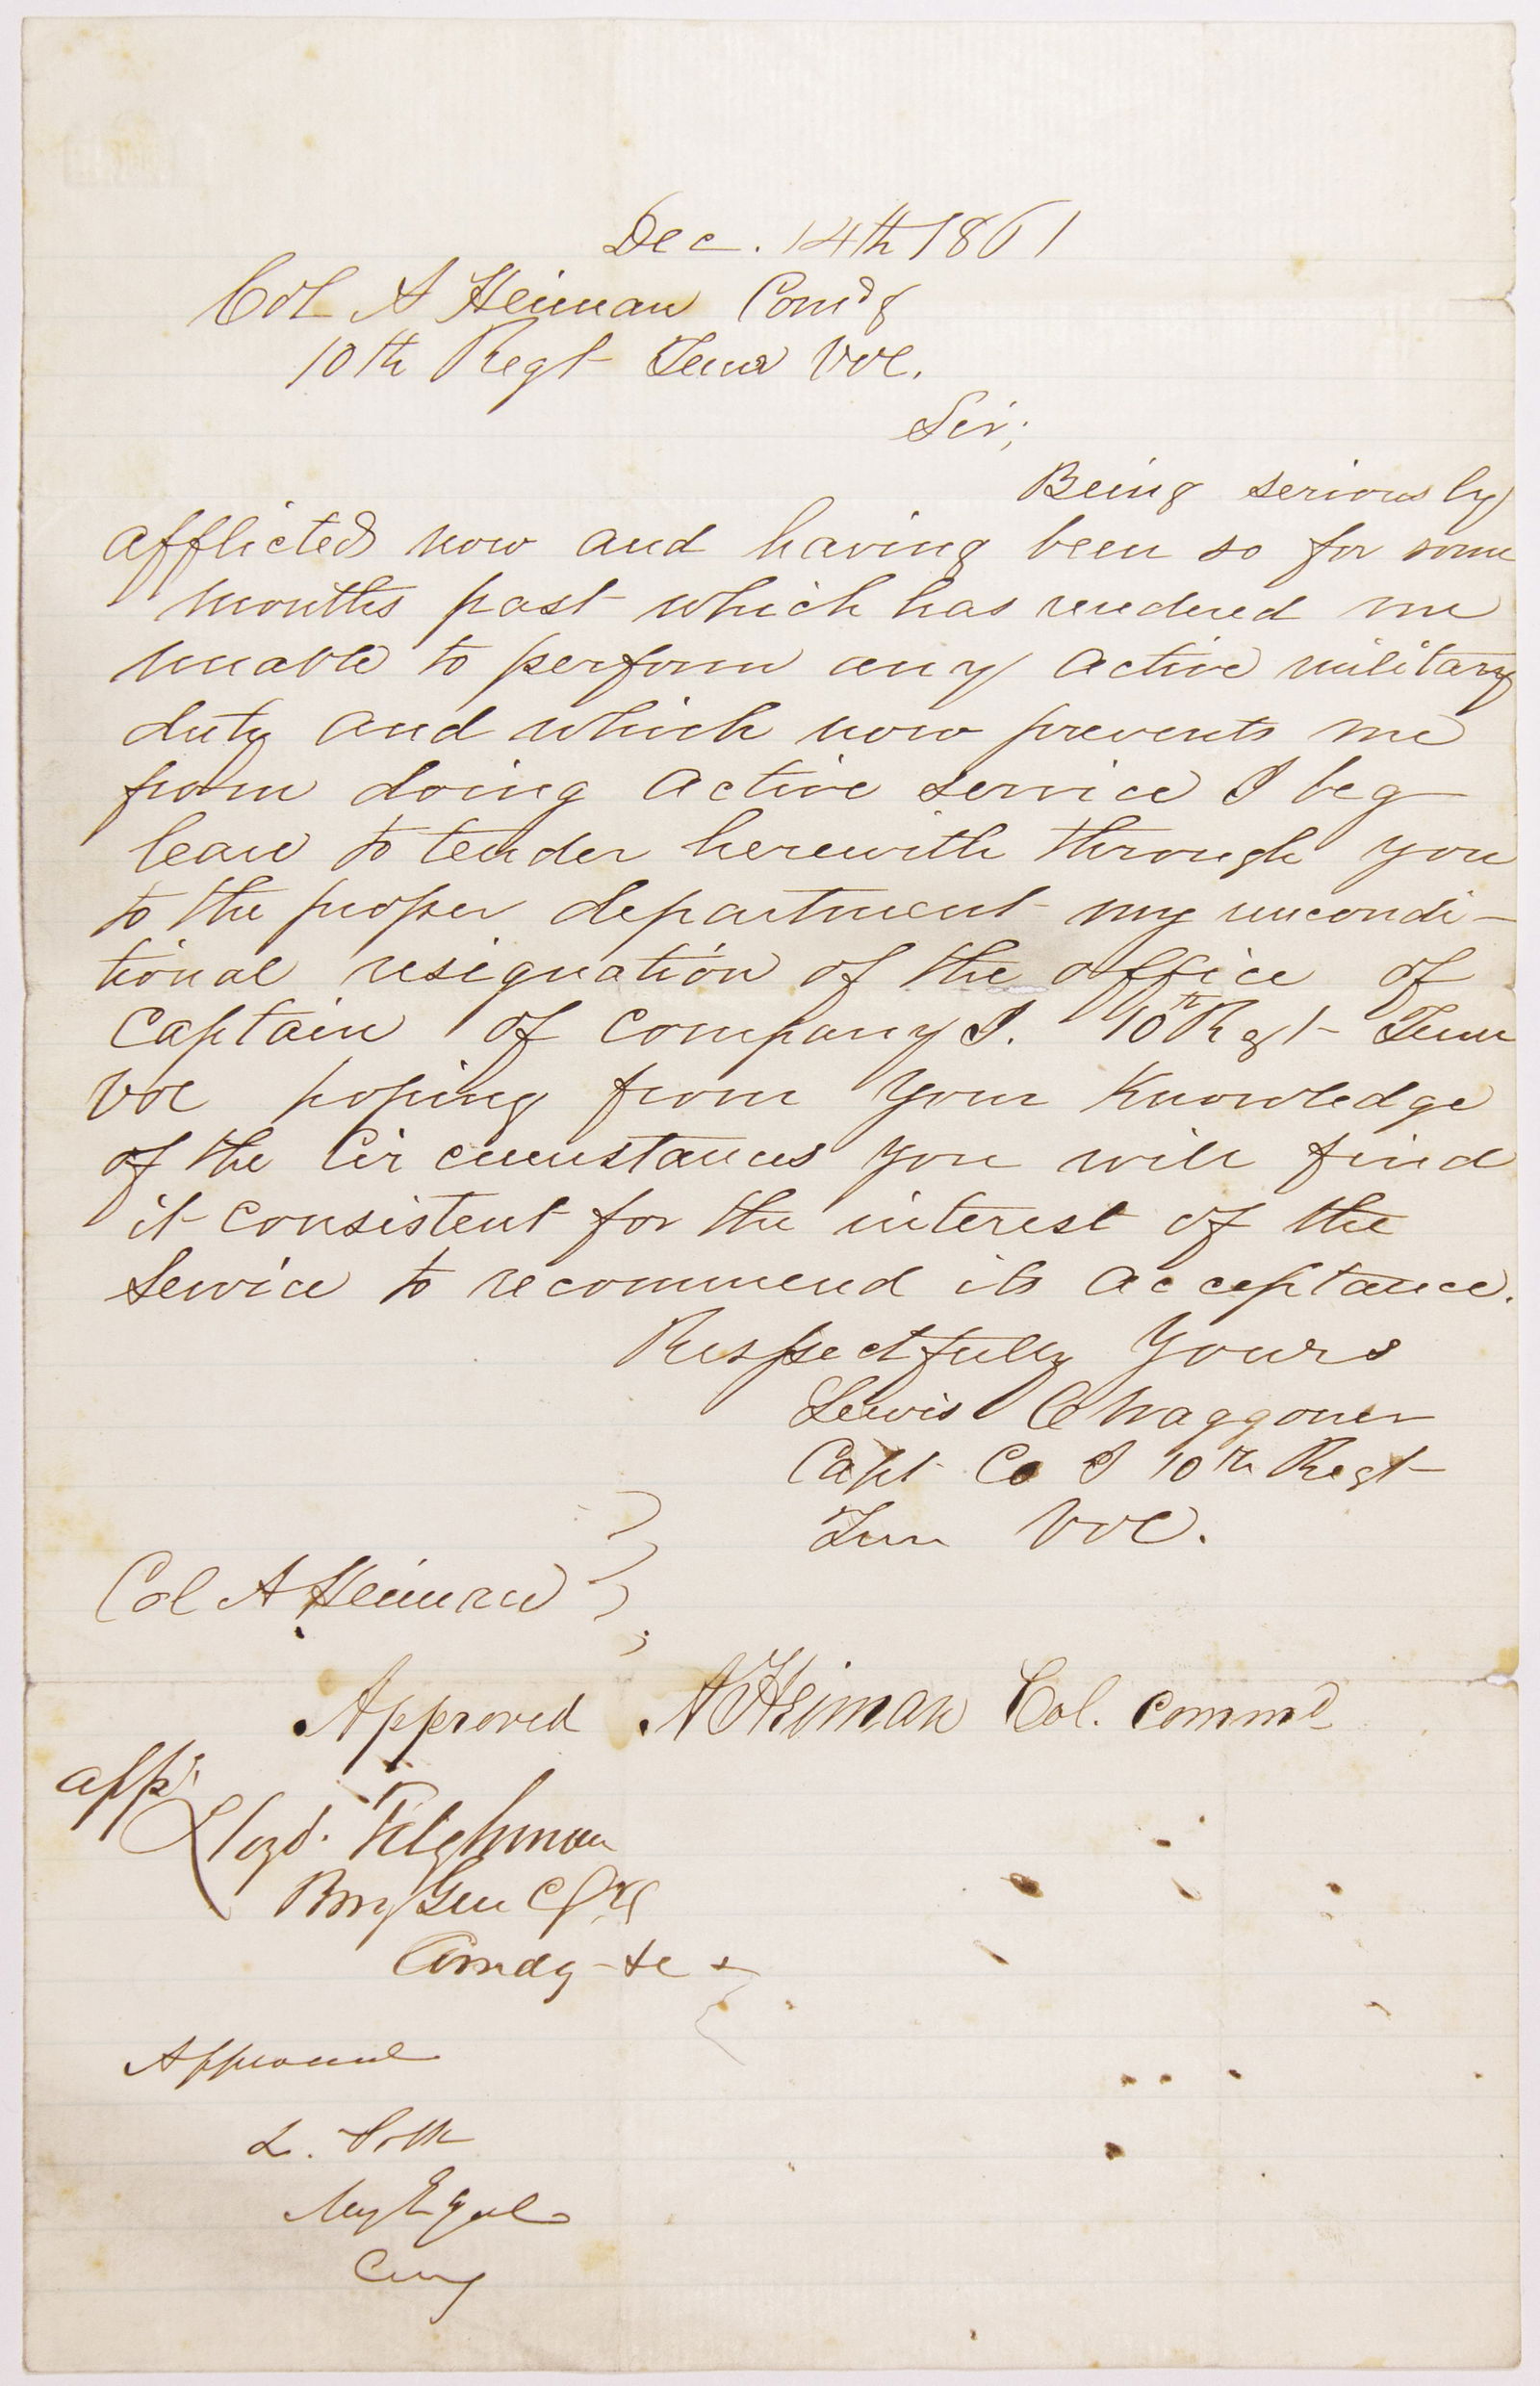 Dec. 14th 1861
Col A Heiman Comdg
10th Regt Tenn Vol.
Sir;
Being seriously
afflicted now and having been so for some
months past which has rendered me
unable to perform any active military
duty and which now prevents me
from doing active service I beg
leave to tender herewith through you
to the proper department my uncondi-
tional resignation of the office of
Captain of Company I. 10th Regt Tenn
Vol hoping from your knowledge
of the circumstances you will find
it consistent for the interest of the
Service to recommend its acceptance.
Respectfully Yours
Lewis C Waggoner
Capt Co I 10th Regt
Tenn Vol.
Col A Heiman
Approved A Heiman Col. Commd
appd
Lloyd Tilghman
Brig Gen C.S.A
Comdg &c
Approved
L. Polk
Maj Genl
Comg